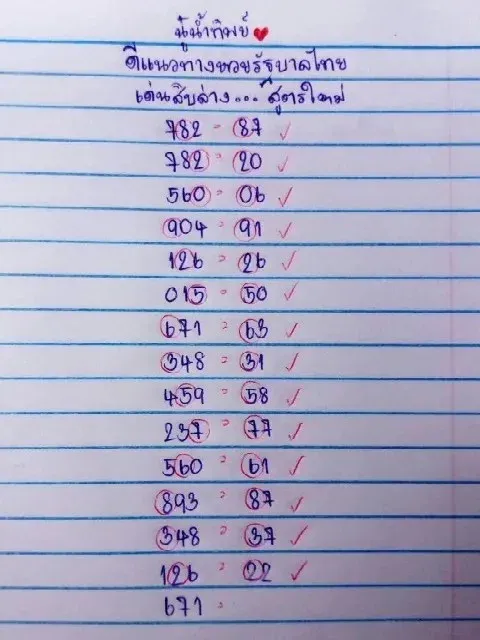 นู๋น้ำทิพย์
ดีแนวทางหวยรัฐบาลไทย
เด่นสิบล่าง... สูตรใหม่
782 = 87 ✓
782 = 20 ✓
560 = 06 ✓
904 = 91 ✓
126 = 26 ✓
015 = 50 ✓
671 = 63 ✓
348 = 31 ✓
459 = 58 ✓
237 = 77 ✓
560 = 61 ✓
893 = 87 ✓
348 = 37 ✓
126 = 22 ✓
671 =